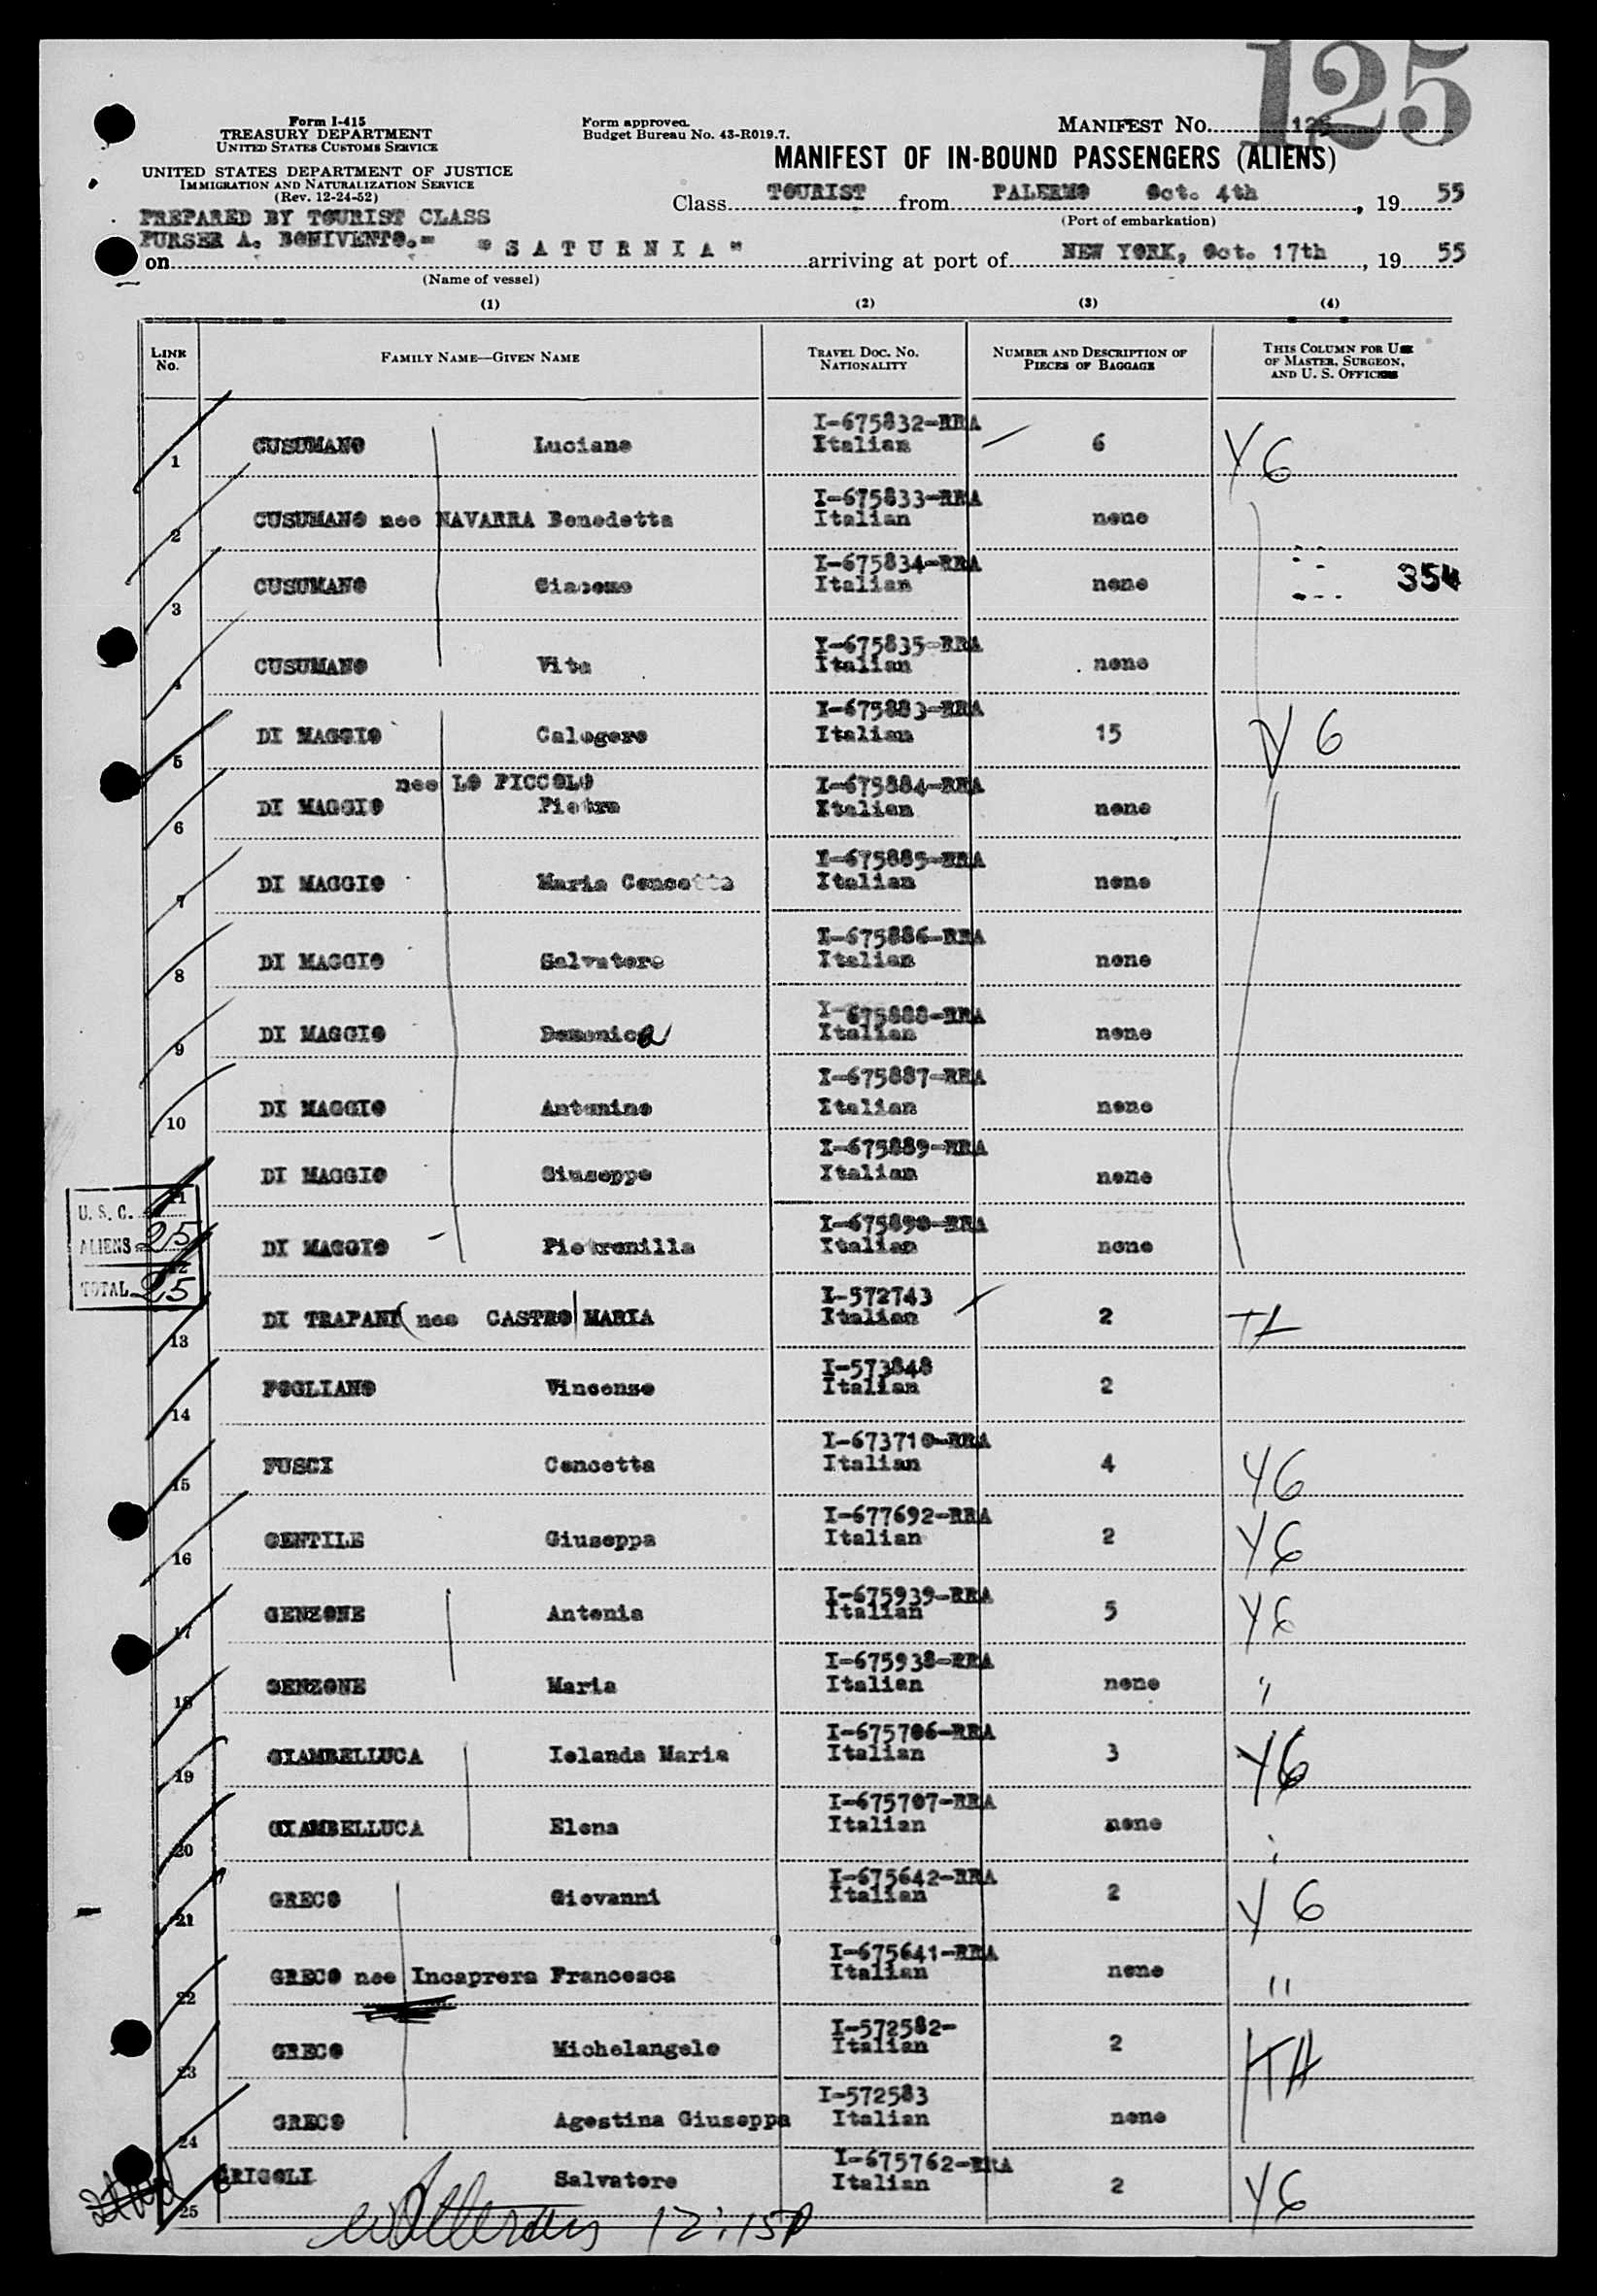 125
Form I-415
TREASURY DEPARTMENT
UNITED STATES CUSTOMS SERVICE
Form approved.
Budget Bureau No. 43-R019.7.
MANIFEST NO. 125
UNITED STATES DEPARTMENT OF JUSTICE
IMMIGRATION AND NATURALIZATION SERVICE
(Rev. 12-24-52)
MANIFEST OF IN-BOUND PASSENGERS (ALIENS)
Class TOURIST from PALERMO Oct. 4th, 19 55
(Port of embarkation)
PREPARED BY TOURIST CLASS
PURSER A. BONIVENTO.=
on "SATURNIA" arriving at port of NEW YORK, Oct. 17th, 19 55
(Name of vessel)
(1) (2) (3) (4)
LINE No. FAMILY NAME—GIVEN NAME TRAVEL DOC. NO. NATIONALITY NUMBER AND DESCRIPTION OF PIECES OF BAGGAGE THIS COLUMN FOR USE OF MASTER, SURGEON, AND U. S. OFFICERS
1 CUSUMANO Luciano I-675832-RRA Italian 6 Y6
2 CUSUMANO nee NAVARRA Benedetta I-675833-RRA Italian none
3 CUSUMANO Giacomo I-675834-RRA Italian none 354
4 CUSUMANO Vito I-675835-RRA Italian none
5 DI MAGGIO Calogero I-675883-RRA Italian 15 Y 6
6 DI MAGGIO nee LO PICCOLO Pietra I-675884-RRA Italian none
7 DI MAGGIO Maria Concetta I-675885-RRA Italian none
8 DI MAGGIO Salvatore I-675886-RRA Italian none
9 DI MAGGIO Domenica I-675888-RRA Italian none
10 DI MAGGIO Antonino I-675887-RRA Italian none
11 DI MAGGIO Giuseppe I-675889-RRA Italian none
U. S. C.
ALIENS 25
TOTAL 25
12 DI MAGGIO Pietronilla I-675890-RRA Italian none
13 DI TRAPANI nee CASTRO MARIA I-572743 Italian 2
14 FOGLIANO Vincenzo I-573848 Italian 2
15 FUSCI Concetta I-673710-RRA Italian 4 Y6
16 GENTILE Giuseppa I-677692-RRA Italian 2 Y6
17 GENZONE Antonia I-675939-RRA Italian 5 Y6
18 GENZONE Maria I-675938-RRA Italian none "
19 GIAMBELLUCA Iolanda Maria I-675706-RRA Italian 3 Y6
20 GIAMBELLUCA Elena I-675707-RRA Italian none
21 GRECO Giovanni I-675642-RRA Italian 2 Y 6
22 GRECO nee Incaprera Francesca I-675641-RRA Italian none "
23 GRECO Michelangelo I-572582- Italian 2
24 GRECO Agostina Giuseppa I-572583 Italian none
25 GRIGOLI Salvatore I-675762-RRA Italian 2 Y6
12:15P